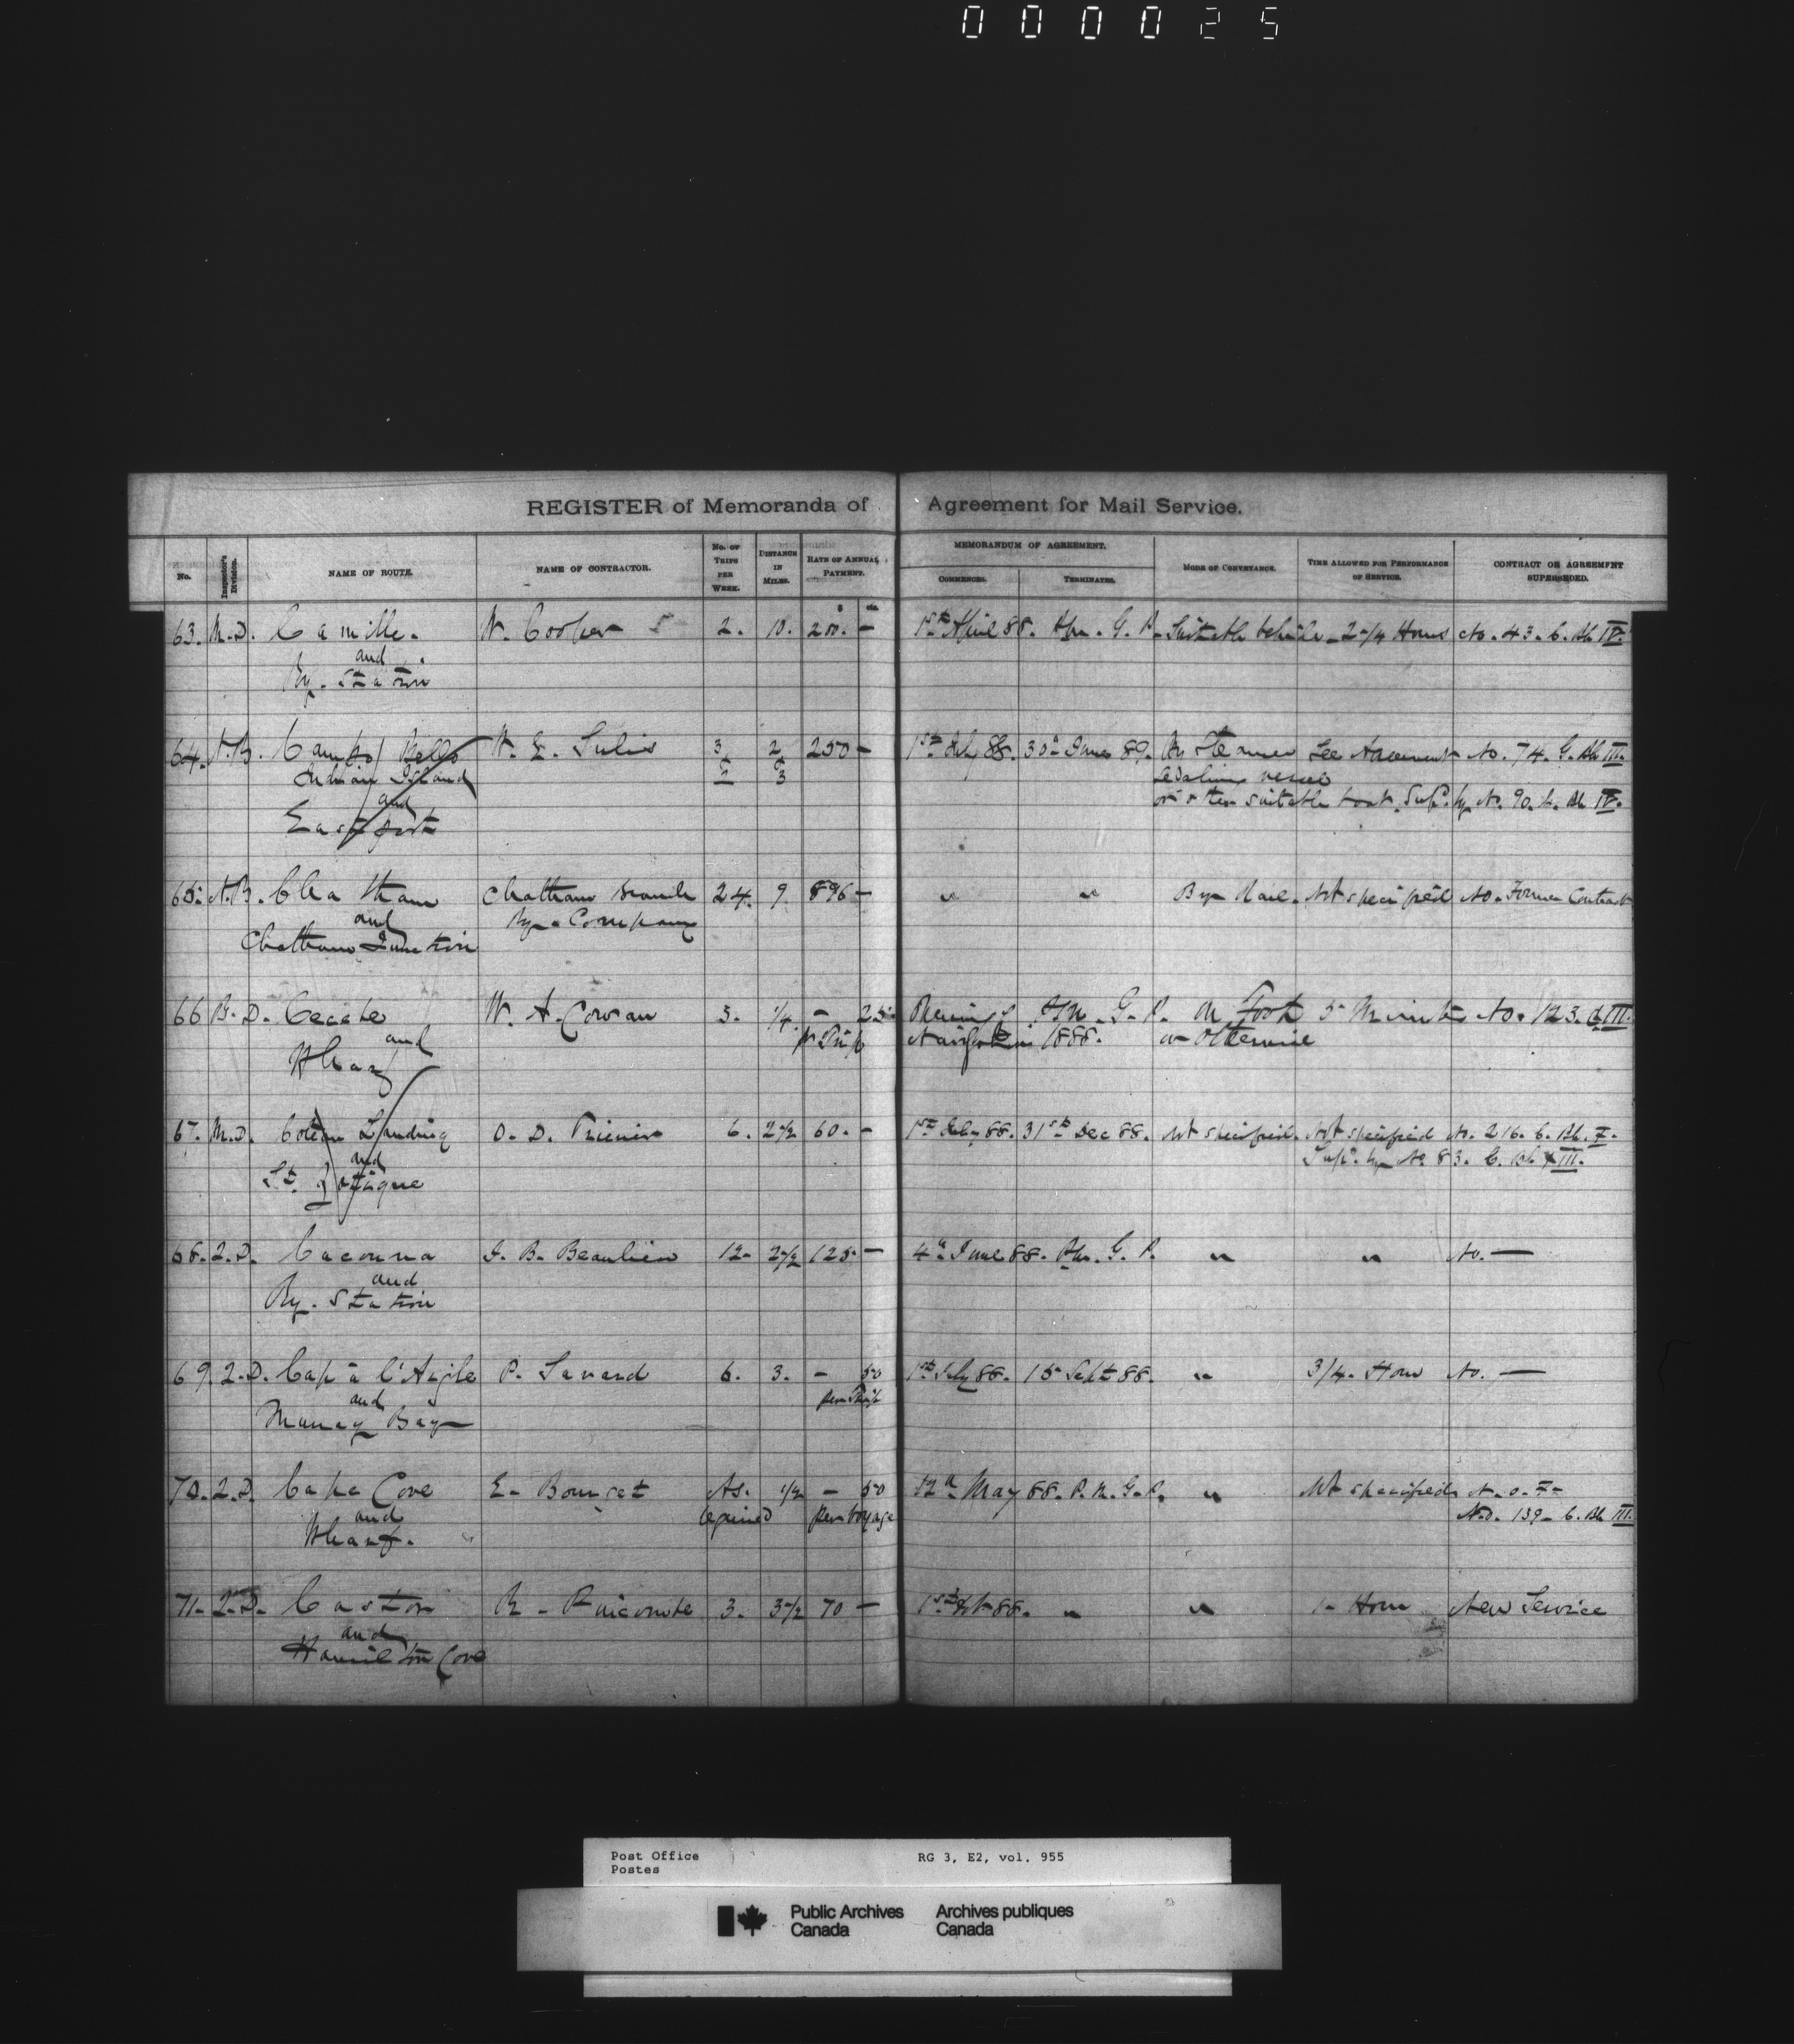 000025
REGISTER of Memoranda of Agreement for Mail Service.
No. Inspector's Division. NAME OF ROUTE. NAME OF CONTRACTOR. No. OF TRIPS PER WEEK. DISTANCE IN MILES. RATE OF ANNUAL PAYMENT. MEMORANDUM OF AGREEMENT. COMMENCES. TERMINATES. MODE OF CONVEYANCE. TIME ALLOWED FOR PERFORMANCE OF SERVICE. CONTRACT OR AGREEMENT SUPERSEDED.
$ cts.
63. M.D. Camille. W. Cooper 2. 10. 200. — 1st April 88. P.M.G.P. Suitable Vehicle 2-1/4 Hours No. 43. C. Bk IV.
and
Ry. Station
64. N.B. Campo Bello 3 2 250 — 1st July 88. 30th June 89. By Steamer See Agreement No. 74. G. Bk III.
Indian Island & & Sailing vessel
and 2 3 or other suitable boat. Supd. by No. 90. Bk IV.
Eastport
65. N.B. Chatham Chatham Branch 24. 9. 896 — " " By Rail. Not specified No. Former Contract
and Ry. Company
Chatham Junction
66 B.D. W. A. Cowan 3. 1/4. — 25 Opening of P.M.G.P. On Foot 5 Minutes No. 123. III.
and pr Trip Navigation 1888. or Otherwise
Wharf
67. M.D. Coteau Landing O. D. 6. 2-1/2 60. — 1st July 88. 31st Dec 88. Not specified. Not specified No. 216. C. Bk. V.
and Supd. by No. 83. C. Bk XIII.
St. Zotique
68. Q.D. Cacouna J. B. Beaulieu 12. 2-1/2 125 — 4th June 88. P.M.G.P. " " No. —
and
Ry. Station
69. Q.D. Cap à l'Aigle P. Savard 6. 3. — 50 1st July 88. 15 Sept 88. " 3/4. Hour No. —
and per Trip
Murray Bay
70. Q.D. Cape Cove E. As. 1/2 — 50 12th May 88. P.M.G.P. " Not specified
and required per voyage No. 139. C. Bk III.
Wharf.
71. Q.D. Castor R. 3. 3-1/2 70 — 88. " " 1. Hour New Service
and
Hamilton Cove
Post Office RG 3, E2, vol. 955
Postes
Public Archives Archives publiques
Canada Canada